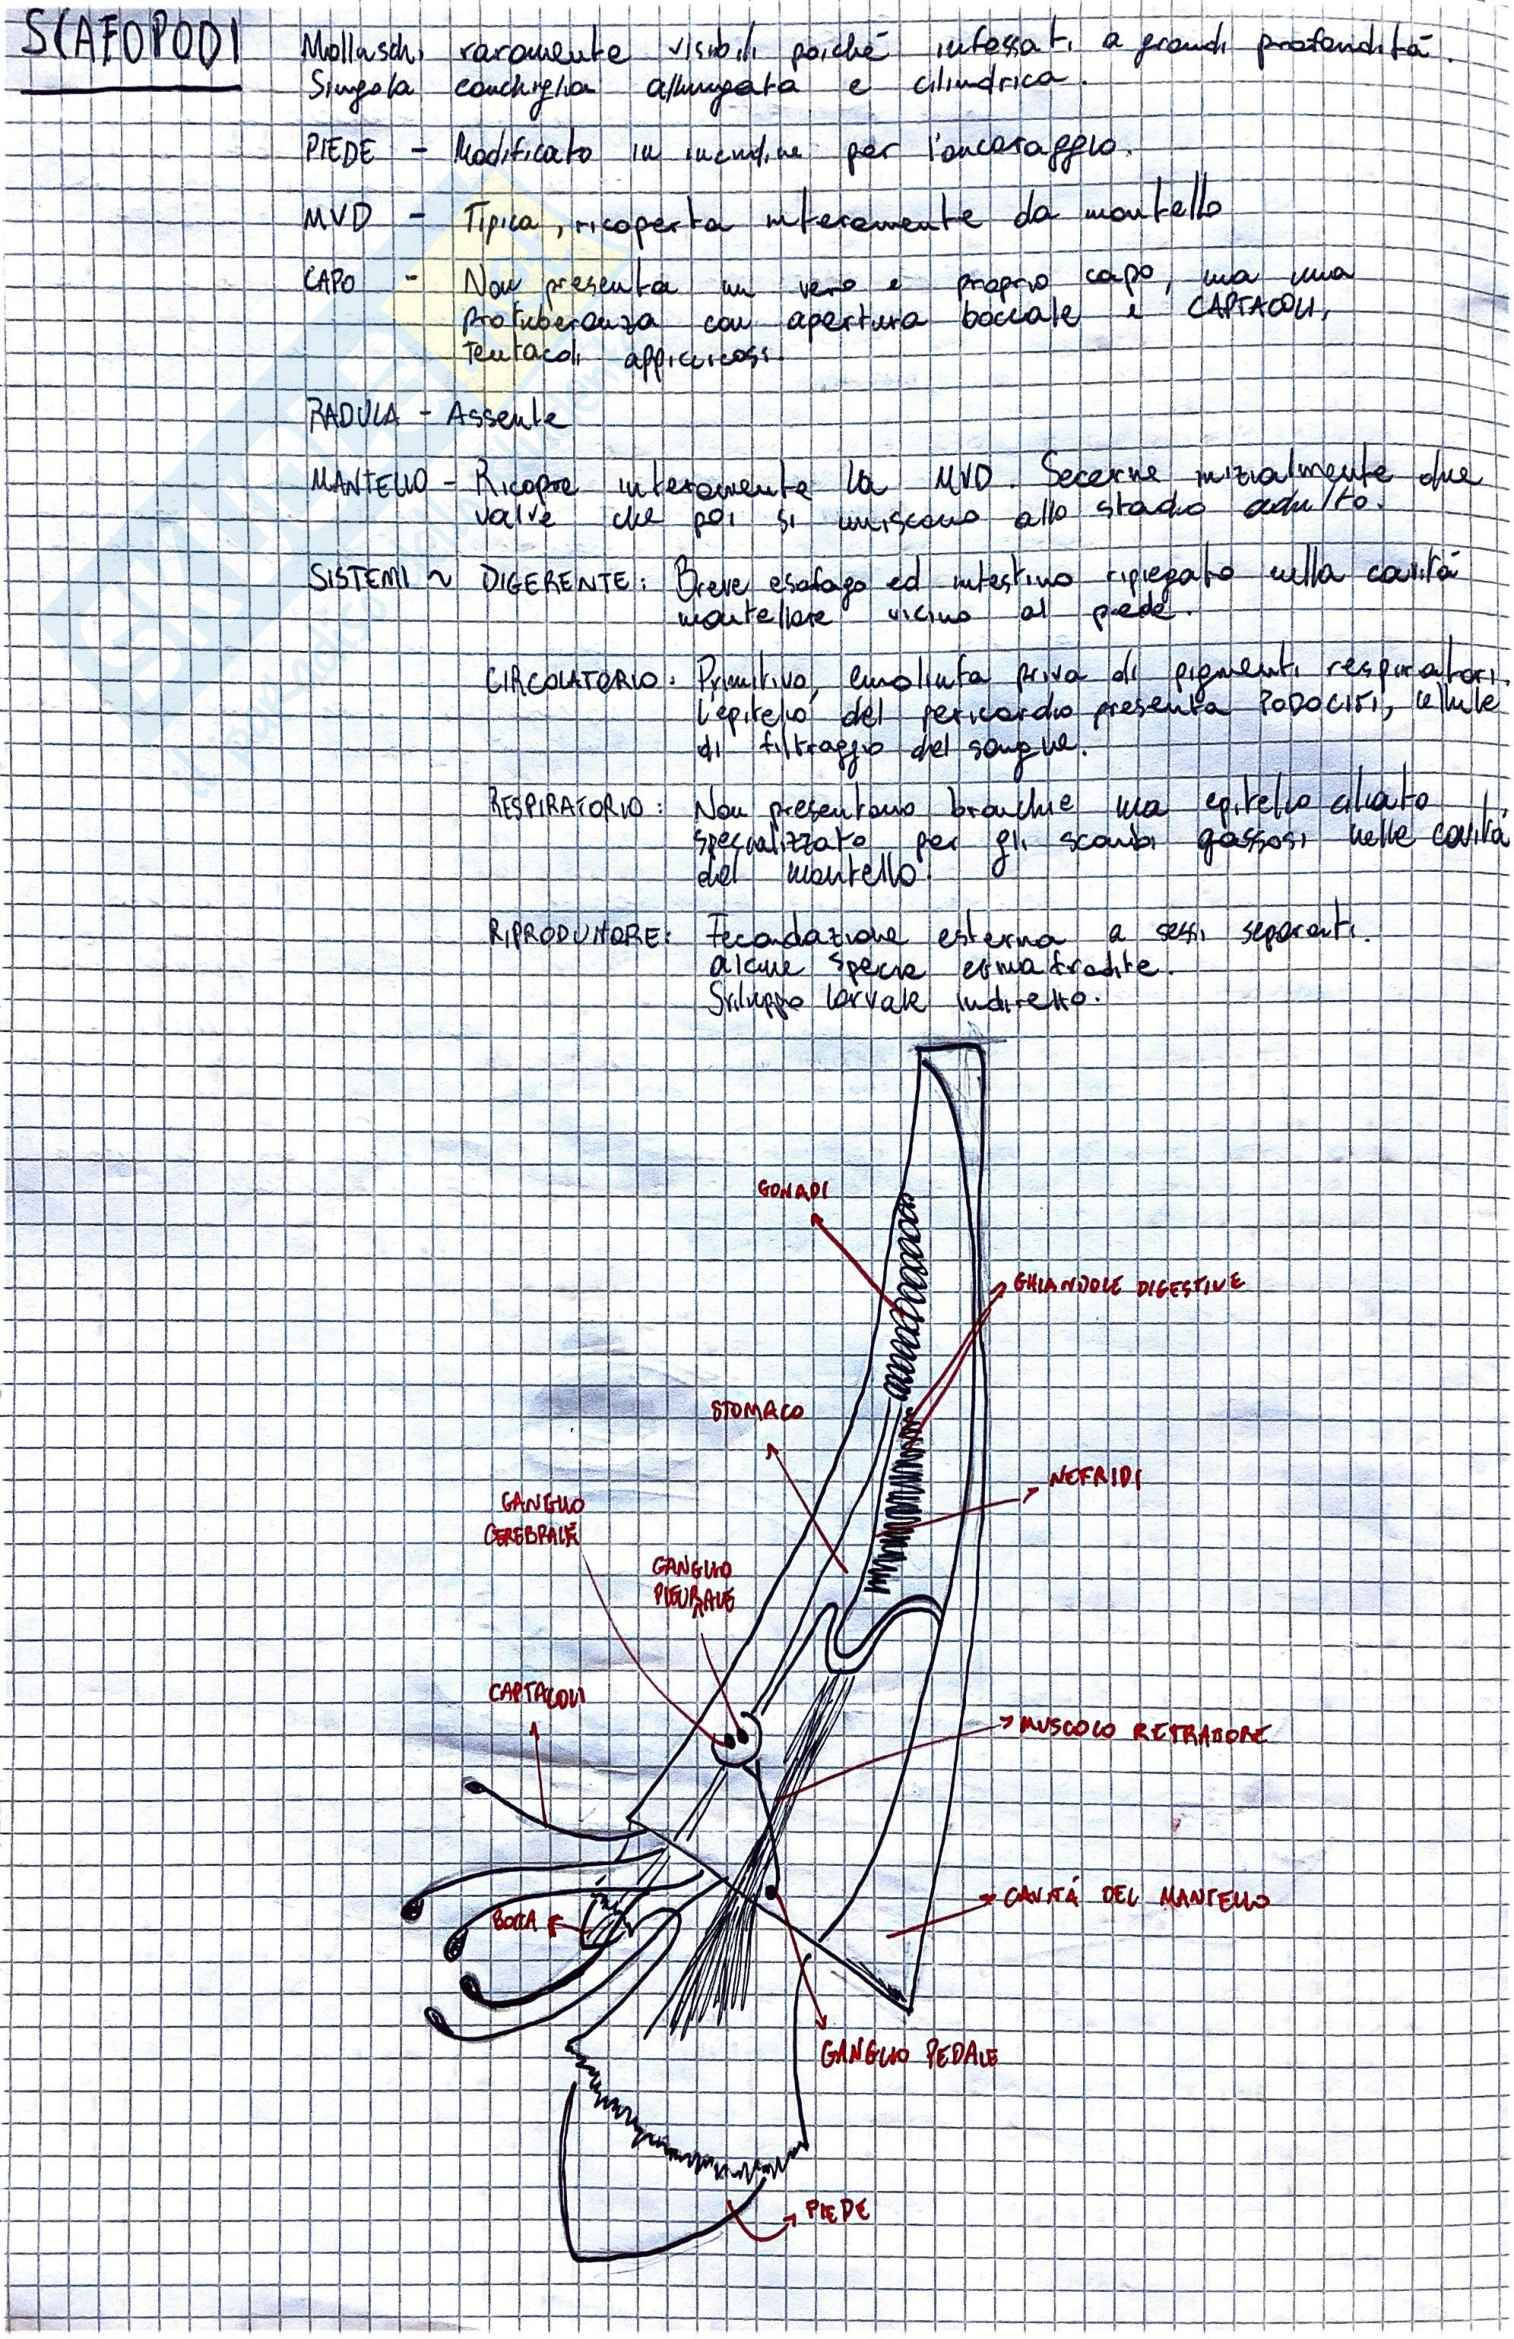 SCAFOPODI
Molluschi raramente visibili poiché infossati a grandi profondità.
Singola conchiglia allungata e cilindrica.
PIEDE - Modificato in incudine per l'ancoraggio.
MVD - Tipica, ricoperta interamente da mantello
CAPO - Non presenta un vero e proprio capo, ma una
protuberanza con apertura boccale e CAPTACOLI,
tentacoli appiccicosi.
RADULA - Assente
MANTELLO - Ricopre interamente la MVD. Secerne inizialmente due
valve che poi si uniscono allo stadio adulto.
SISTEMI ~ DIGERENTE: Breve esofago ed intestino ripiegato nella cavità
mantellare vicino al piede.
CIRCOLATORIO: Primitivo, emolinfa priva di pigmenti respiratori.
L'epitelio del pericardio presenta PODOCITI, cellule
di filtraggio del sangue.
RESPIRATORIO: Non presentano branchie ma epitelio ciliato
specializzato per gli scambi gassosi nelle cavità
del mantello.
RIPRODUTTORE: Fecondazione esterna a sessi separati.
alcune specie ermafrodite.
Sviluppo larvale indiretto.
GONADI
GHIANDOLE DIGESTIVE
STOMACO
NEFRIDI
GANGLIO
CEREBRALE
GANGLIO
PLEURALE
CAPTACOLI
MUSCOLO RETRATTORE
CAVITÁ DEL MANTELLO
BOCCA
GANGLIO PEDALE
PIEDE